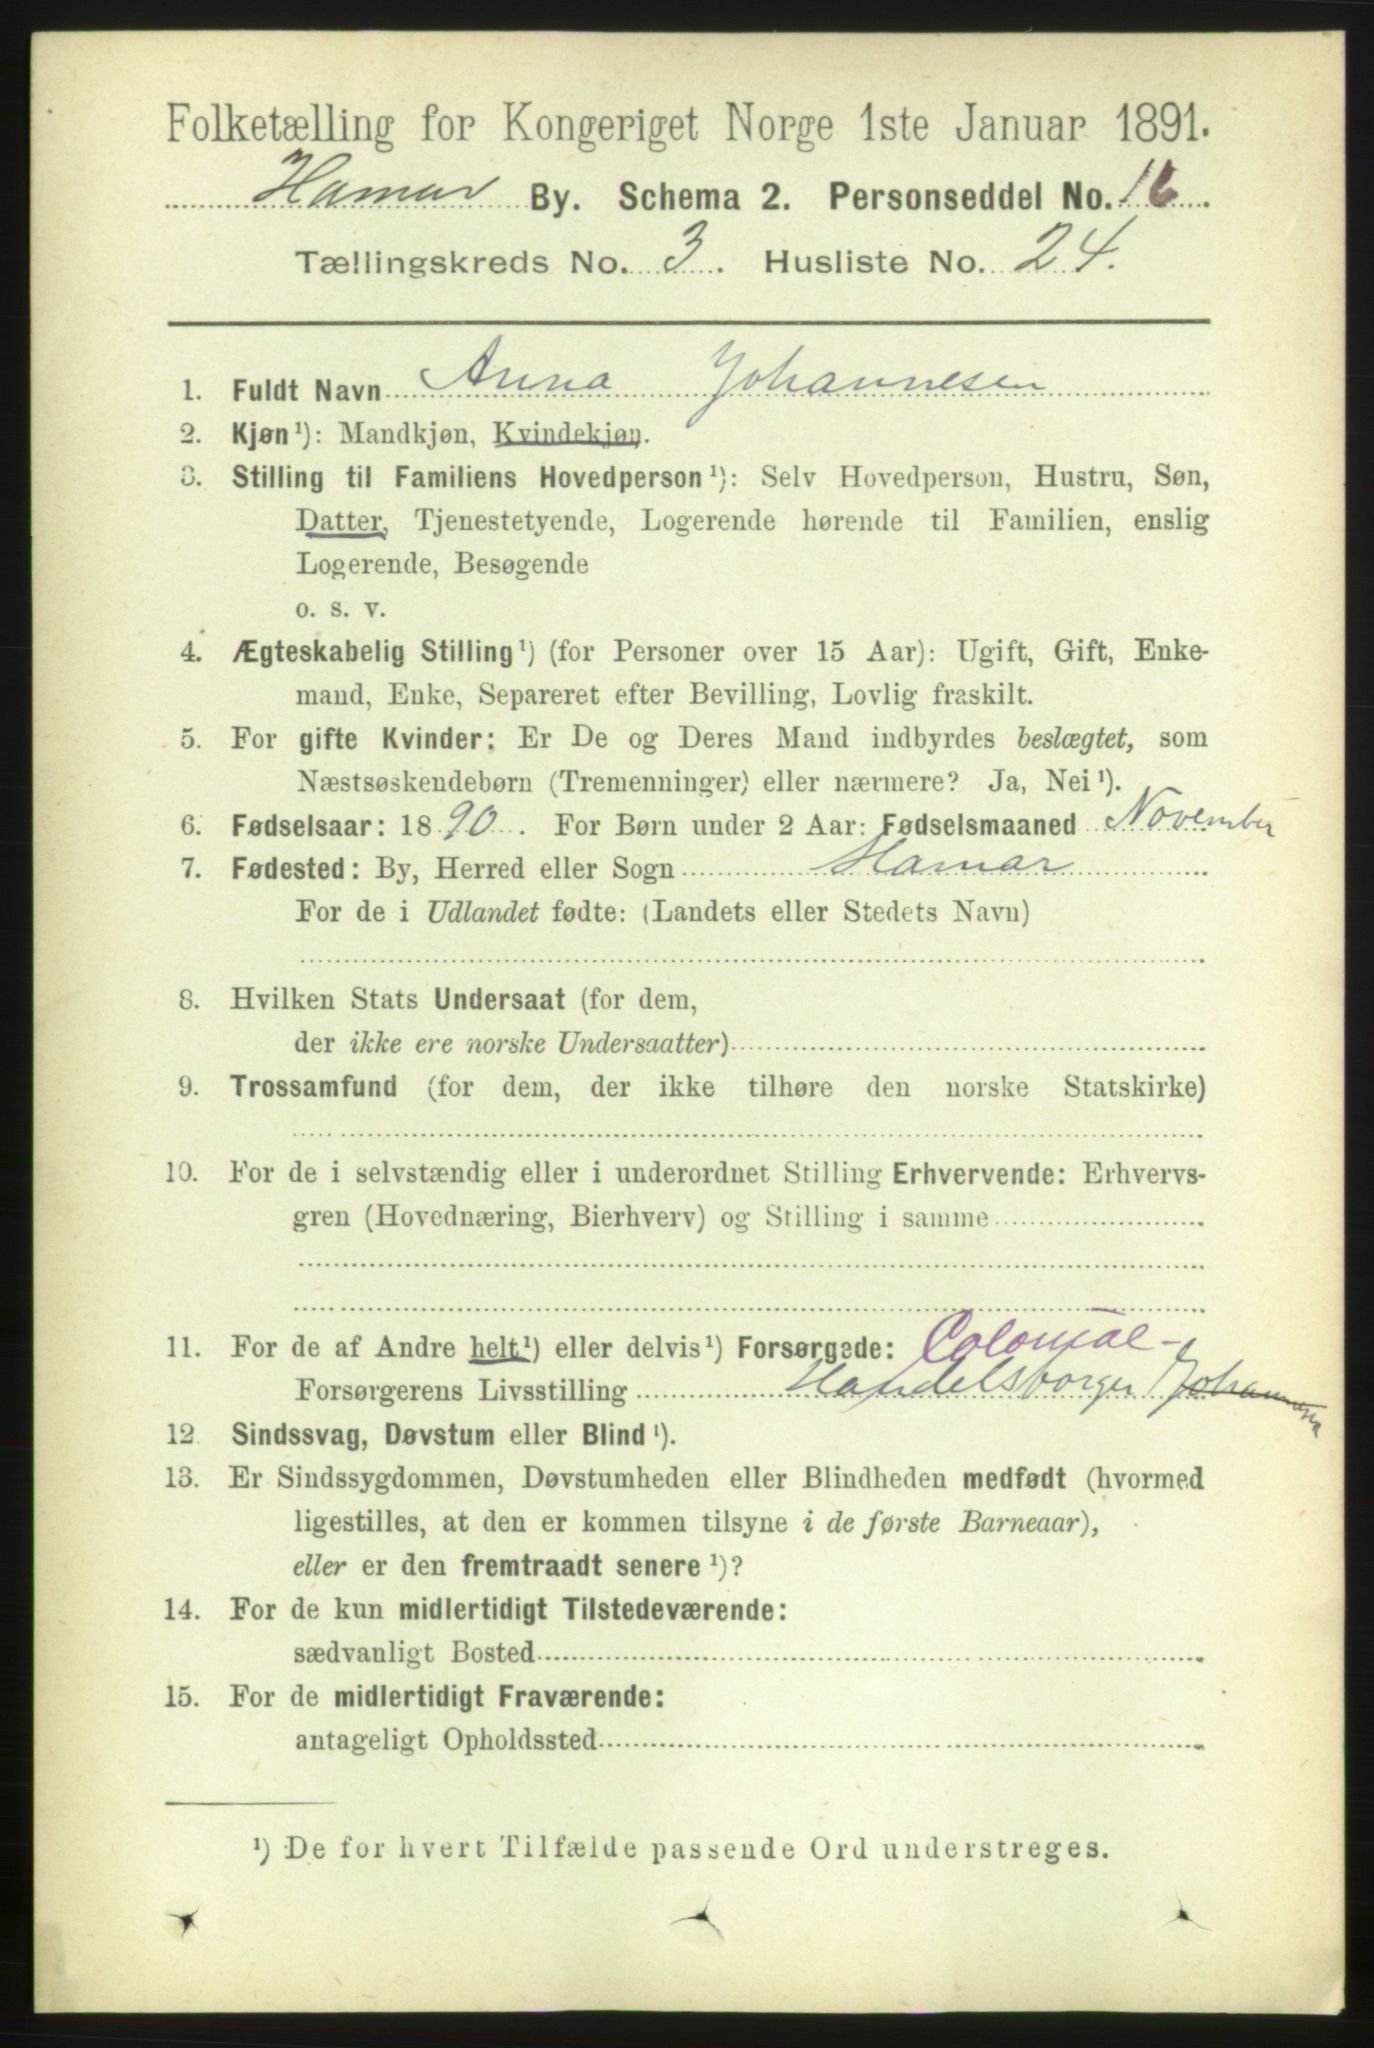 Folketælling for Kongeriget Norge 1ste Januar 1891.
Hamar By. Schema 2. Personseddel No. 16.
Tællingskreds No. 3. Husliste No. 24.
1. Fuldt Navn Anna Johannesen
2. Kjøn¹): Mandkjøn, Kvindekjøn.
3. Stilling til Familiens Hovedperson¹): Selv Hovedperson, Hustru, Søn,
Datter, Tjenestetyende, Logerende hørende til Familien, enslig
Logerende, Besøgende
o. s. v.
4. Ægteskabelig Stilling¹) (for Personer over 15 Aar): Ugift, Gift, Enke-
mand, Enke, Separeret efter Bevilling, Lovlig fraskilt.
5. For gifte Kvinder: Er De og Deres Mand indbyrdes beslægtet, som
Næstsøskendebørn (Tremenninger) eller nærmere? Ja, Nei¹).
6. Fødselsaar: 1890. For Børn under 2 Aar: Fødselsmaaned November
7. Fødested: By, Herred eller Sogn Hamar
For de i Udlandet fødte: (Landets eller Stedets Navn)
8. Hvilken Stats Undersaat (for dem,
der ikke ere norske Undersaatter)
9. Trossamfund (for dem, der ikke tilhøre den norske Statskirke)
10. For de i selvstændig eller i underordnet Stilling Erhvervende: Erhvervs-
gren (Hovednæring, Bierhverv) og Stilling i samme
11. For de af Andre helt¹) eller delvis¹) Forsørgede: Colonial-
Forsørgerens Livsstilling Handelsborger Johannesen
12. Sindssvag, Døvstum eller Blind¹).
13. Er Sindssygdommen, Døvstumheden eller Blindheden medfødt (hvormed
ligestilles, at den er kommen tilsyne i de første Barneaar),
eller er den fremtraadt senere¹)?
14. For de kun midlertidigt Tilstedeværende:
sædvanligt Bosted
15. For de midlertidigt Fraværende:
antageligt Opholdssted
¹) De for hvert Tilfælde passende Ord understreges.